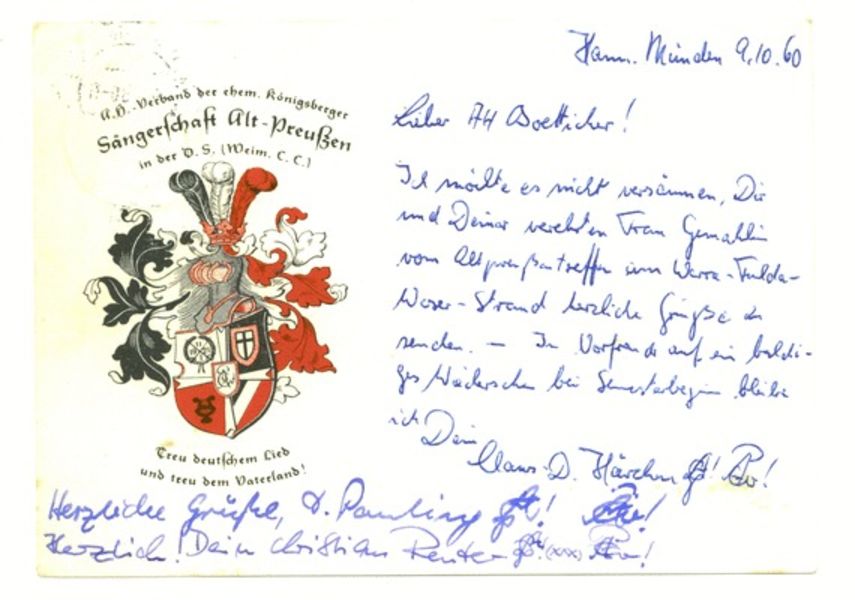 Hann. Münden 9.10.60
A.H.-Verband der ehem. Königsberger
Sängerschaft Alt-Preußen
in der D.S. (Weim. C.C.)
Lieber AH Boetticher!
Ich möchte es nicht versäumen, Dir
und Deiner verehrten Frau Gemahlin
vom Altpreußentreffen am Werra-Fulda-
Weser-Strand herzliche Grüße zu
senden. — In Vorfreude auf ein baldi-
ges Wiedersehen bei Semesterbeginn bleibe
ich Dein
Claus-D.
Treu deutschem Lied
und treu dem Vaterland!
Herzliche Grüße, D. Pauling
Herzlich! Dein Christian Reuter (xxx)